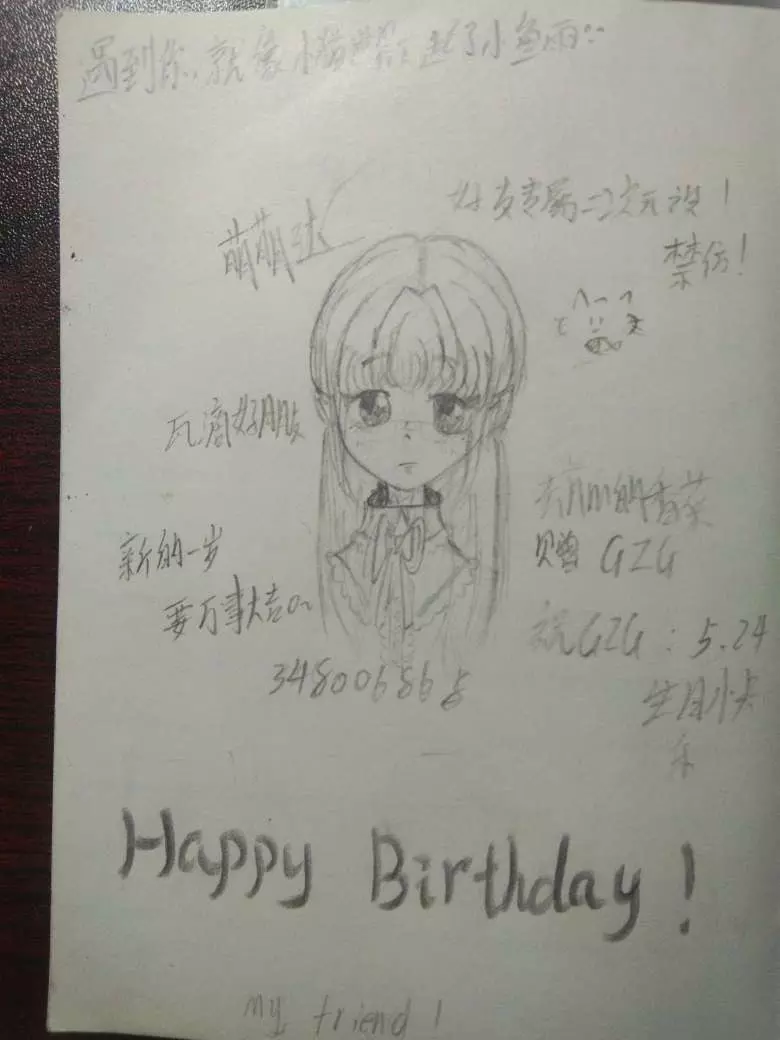 遇到你,就像小猫世界下起了小鱼雨
萌萌达
好友专属二次元设!
禁仿!
瓦滴好朋友
的香菜
赠 GZG
新的一岁
要万事大吉~
祝GZG:5.24
生日快
乐
Happy Birthday!
My friend!